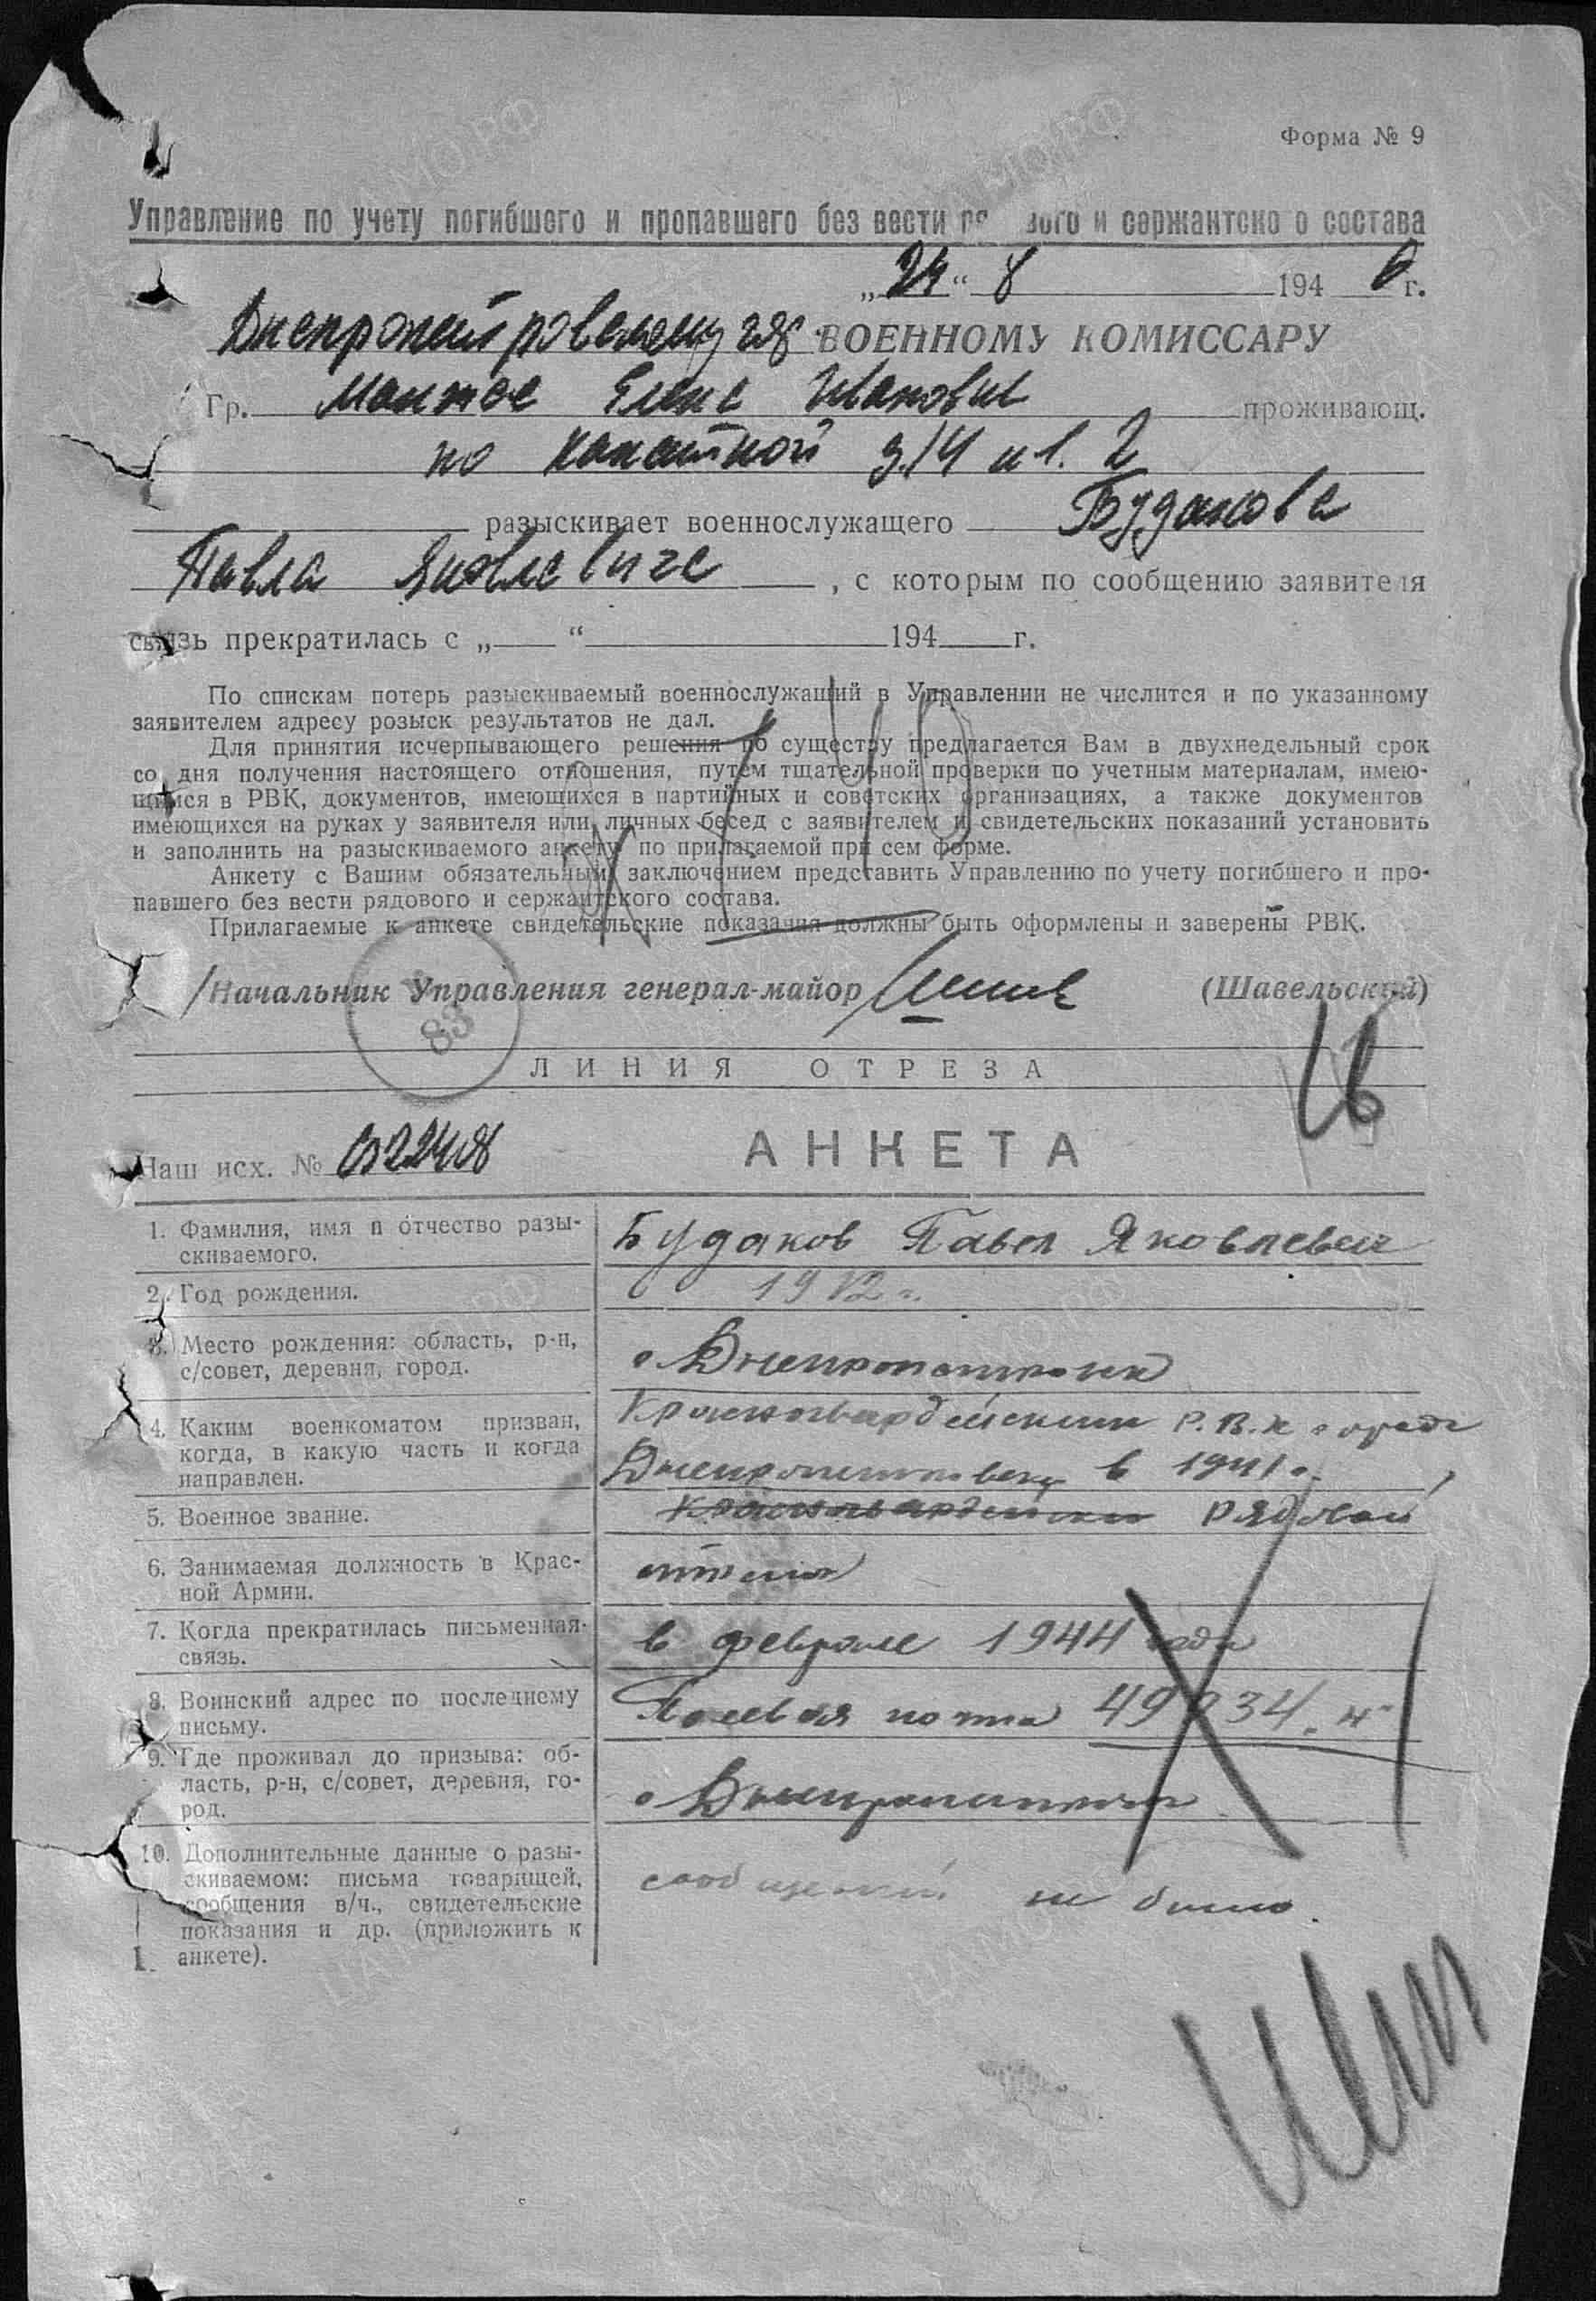 Форма № 9
Управление по учету погибшего и пропавшего без вести и сержантско о состава
„24“ 8 1946 г.
ВОЕННОМУ КОМИССАРУ
Гр. Елене Ивановне проживающ.
по Канатной 2
разыскивает военнослужащего Будакова
Павла Яковлевича, с которым по сообщению заявителя
связь прекратилась с „ “ 194 г.
По спискам потерь разыскиваемый военнослужащий в Управлении не числится и по указанному
заявителем адресу розыск результатов не дал.
Для принятия исчерпывающего решения по существу предлагается Вам в двухнедельный срок
со дня получения настоящего отношения, путем тщательной проверки по учетным материалам, имею-
щимся в РВК, документов, имеющихся в партийных и советских организациях, а также документов
имеющихся на руках у заявителя или личных бесед с заявителем и свидетельских показаний установить
и заполнить на разыскиваемого анкету по прилагаемой при сем форме.
Анкету с Вашим обязательным заключением представить Управлению по учету погибшего и про-
павшего без вести рядового и сержантского состава.
Прилагаемые к анкете свидетельские показания должны быть оформлены и заверены РВК.
Начальник Управления генерал-майор (Шавельский)
83
ЛИНИЯ ОТРЕЗА
Наш исх. №
АНКЕТА
1. Фамилия, имя и отчество разы-
скиваемого.
Будаков Павел Яковлевич
2. Год рождения.
1912 г.
3. Место рождения: область, р-н,
с/совет, деревня, город.
г Днепропетровск
4. Каким военкоматом призван,
когда, в какую часть и когда
направлен.
Красногвардейским Р.В.К города
Днепропетровска в 1941 г.
5. Военное звание.
Красногвардейским рядовой
6. Занимаемая должность в Крас-
ной Армии.
7. Когда прекратилась письменная
связь.
в феврале 1944 года
8. Воинский адрес по последнему
письму.
Полевая почта
9. Где проживал до призыва: об-
ласть, р-н, с/совет, деревня, го-
род.
г Днепропетровск
10. Дополнительные данные о разы-
скиваемом: письма товарищей,
сообщения в/ч., свидетельские
показания и др. (приложить к
анкете).
сообщений не было.